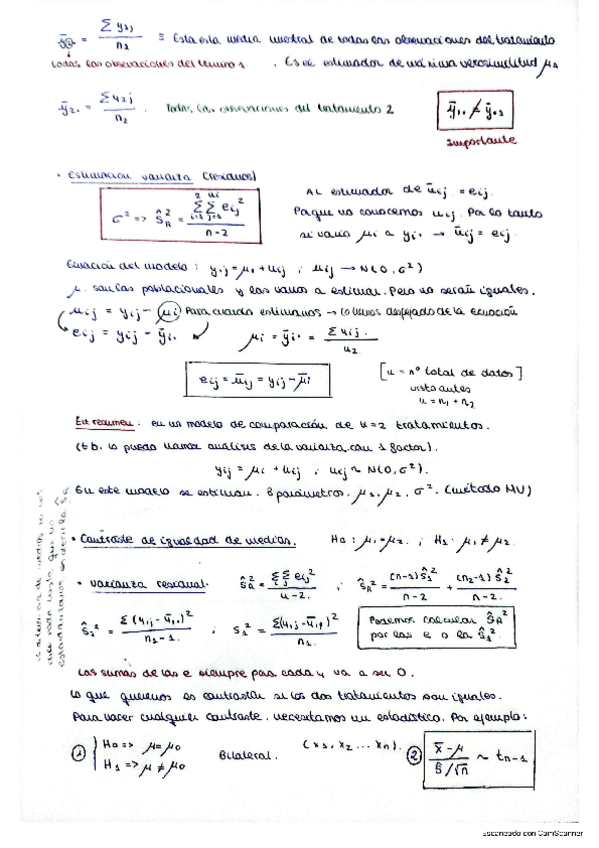 ȳ₁. = Σ y₁j / n₁ ≡ Esta es la media muestral de todas las observaciones del tratamiento
todas las observaciones del término 1 . Es el estimador de máxima verosimilitud μ₁
ȳ₂. = Σ y₂j / n₂ . Todas las observaciones del tratamiento 2
ȳ₁. ≠ ȳ.₁
importante
• Estimación varianza (residuos)
σ² => Ŝ_R² = Σ Σ eij² / n-2
Al estimador de ûij = eij.
Porque no conocemos uij. Por lo tanto
si varío μi a yi. → ûij = eij.
Ecuación del modelo : yij = μi + uij ; uij → N(0, σ²)
μ. son las poblacionales y las vamos a estimar. Pero no serán iguales.
uij = yij - μi Para cuando estimamos → lo hemos despejado de la ecuación
eij = yij - ȳi.
eij = ûij = yij - μ̂i
[n = nº total de datos]
visto antes
n = n₁ + n₂
En resumen : en un modelo de comparación de k=2 tratamientos.
(tb. lo puedo llamar análisis de la varianza con 1 factor).
yij = μi + uij ; uij ~ N(0, σ²).
En este modelo se estiman. 3 parámetros. μ₁, μ₂, σ². (método MV)
• Contraste de igualdad de medias. H₀ : μ₁ = μ₂. ; H₁ : μ₁ ≠ μ₂.
• Varianza residual. Ŝ_R² = Σ Σ eij² / n-2. ; Ŝ_R² = (n₁-1) Ŝ₁² / n-2 + (n₂-1) Ŝ₂² / n-2.
Ŝ₁² = Σ (y₁j - ȳ₁.)² / n₁-1. ; S₁² = Σ (y₁j - ȳ₁.)² / n₁.
Podemos calcular Ŝ_R²
por las e o la Ŝ₁².
Las sumas de las e siempre para cada y va a ser 0.
Lo que queremos es contrastar si los dos tratamientos son iguales.
Para hacer cualquier contraste. necesitamos un estadístico. Por ejemplo :
① H₀ => μ = μ₀
H₁ => μ ≠ μ₀
Bilateral.
(x₁, x₂ ... xn).
② x̄ - μ / Ŝ/√n ~ tn-1
Escaneado con CamScanner